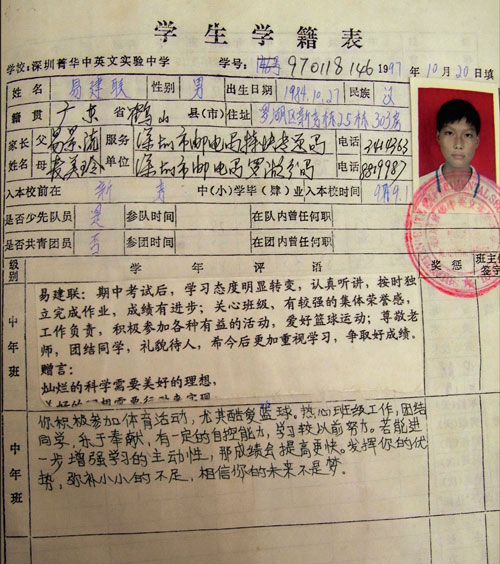 学生学籍表
学校:深圳菁华中英文实验中学 学号: 970118146 1997年10月20日填
姓名 易建联 性别 男 出生日期 1984.10.27 民族 汉
籍贯 广东省鹤山县(市) 住址 罗湖区新秀村25栋303房
家长姓名 父 易景流 服务单位 深圳市邮电局特快专递局 电话
母 麦美玲 深圳市邮电局罗湖分局 电话
入本校前在 新秀 中(小)学毕(肄)业 入本校时间 97.9.1
是否少先队员 是 参队时间 在队内曾任何职
是否共青团员 否 参团时间 在团内曾任何职
级别 学年评语 奖惩 班主任签字
中 年 班
易建联:期中考试后,学习态度明显转变,认真听讲,按时独
立完成作业,成绩有进步;关心班级,有较强的集体荣誉感,
工作负责,积极参加各种有益的活动,爱好篮球运动;尊敬老
师,团结同学,礼貌待人,希今后更加重视学习,争取好成绩。
赠言:
灿烂的科学需要美好的理想,
中 年 班
你积极参加体育活动,尤其酷爱篮球。热心班级工作,团结
同学,乐于奉献,有一定的自控能力,学习较以前努力。若能进
一步增强学习的主动性,那成绩会提高更快。发挥你的优
势,弥补小小的不足,相信你的未来不是梦。